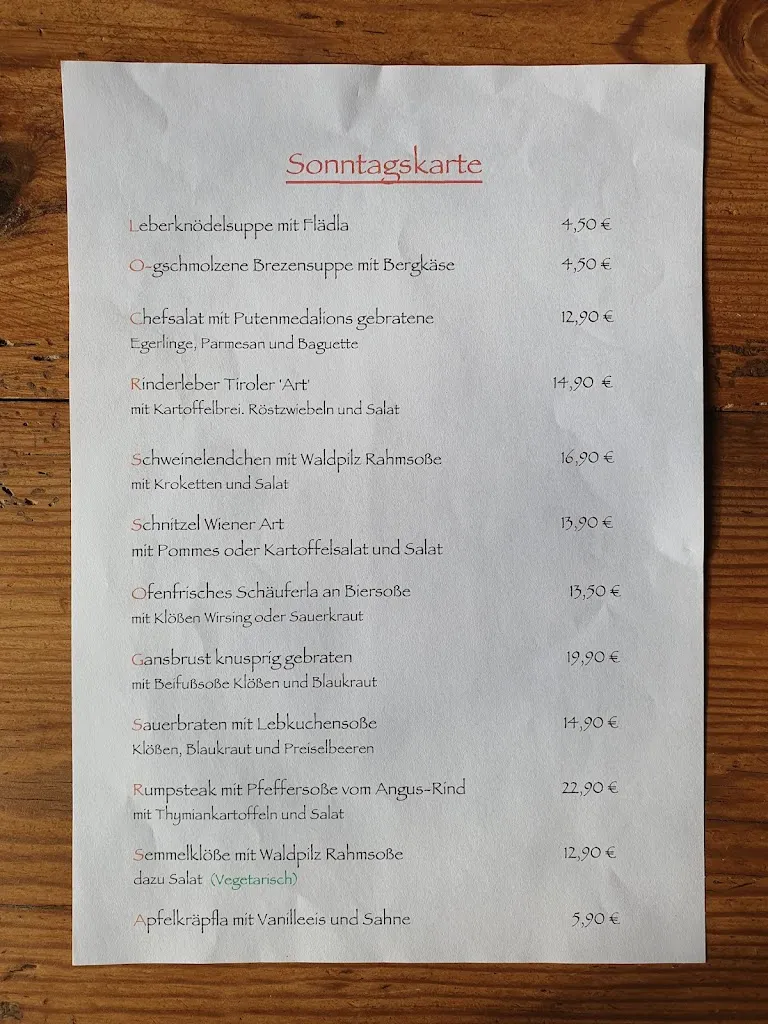 Sonntagskarte
Leberknödelsuppe mit Flädla 4,50 €
O-gschmolzene Brezensuppe mit Bergkäse 4,50 €
Chefsalat mit Putenmedalions gebratene 12,90 €
Egerlinge, Parmesan und Baguette
Rinderleber Tiroler 'Art' 14,90 €
mit Kartoffelbrei. Röstzwiebeln und Salat
Schweinelendchen mit Waldpilz Rahmsoße 16,90 €
mit Kroketten und Salat
Schnitzel Wiener Art 13,90 €
mit Pommes oder Kartoffelsalat und Salat
Ofenfrisches Schäuferla an Biersoße 13,50 €
mit Klößen Wirsing oder Sauerkraut
Gansbrust knusprig gebraten 19,90 €
mit Beifußsoße Klößen und Blaukraut
Sauerbraten mit Lebkuchensoße 14,90 €
Klößen, Blaukraut und Preiselbeeren
Rumpsteak mit Pfeffersoße vom Angus-Rind 22,90 €
mit Thymiankartoffeln und Salat
Semmelklöße mit Waldpilz Rahmsoße 12,90 €
dazu Salat (Vegetarisch)
Apfelkräpfla mit Vanilleeis und Sahne 5,90 €